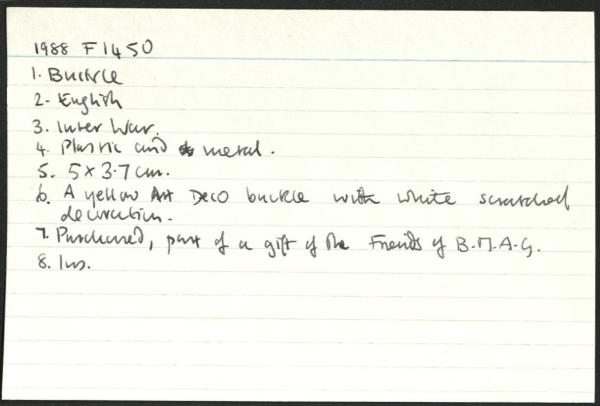 1988 F 1450
1. Buckle
2. English
3. Inter War.
4. Plastic and metal.
5. 5 x 3.7 cm.
6. A yellow Art Deco buckle with white scratched
decoration.
7. Purchased, part of a gift of the Friends of B.M.A.G.
8. Ins.